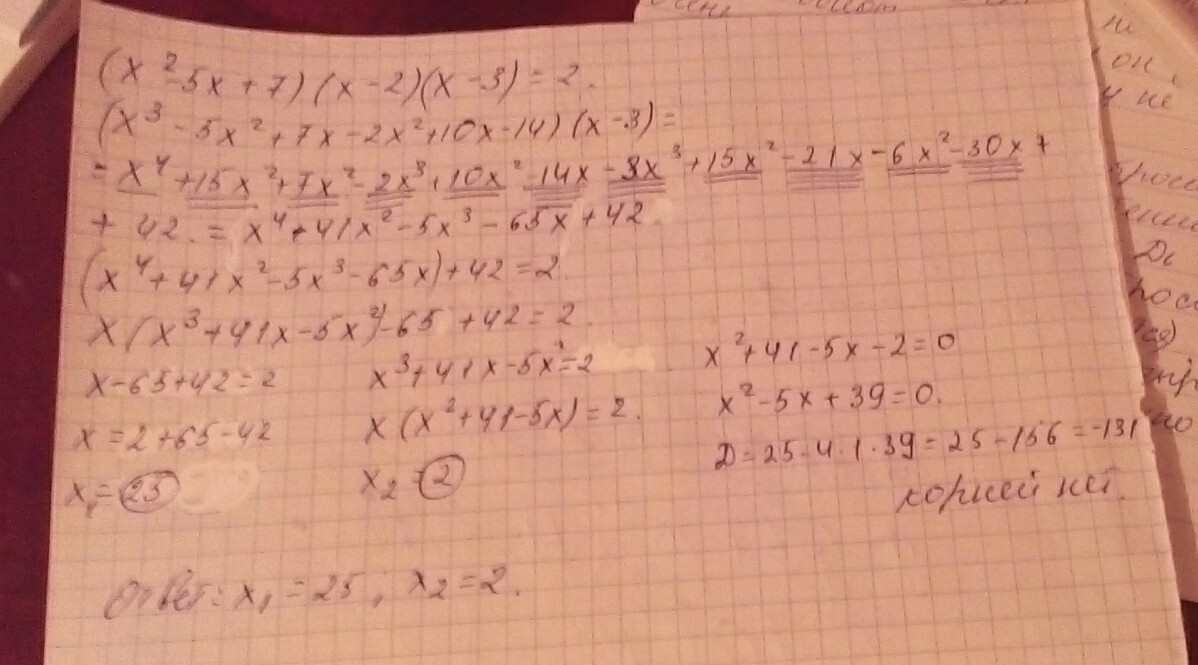 (x² - 5x + 7)(x - 2)(x - 3) = 2.
(x³ - 5x² + 7x - 2x² + 10x - 14)(x - 3) =
= x⁴ + 15x² + 7x² - 2x³ + 10x² - 14x - 3x³ + 15x² - 21x - 6x² - 30x +
+ 42. = x⁴ + 41x² - 5x³ - 65x + 42.
(x⁴ + 41x² - 5x³ - 65x) + 42 = 2.
x(x³ + 41x - 5x²) - 65 + 42 = 2.
x - 65 + 42 = 2
x = 2 + 65 - 42
x₁ = 25
x³ + 41x - 5x² = 2
x(x² + 41 - 5x) = 2.
x₂ = 2
x² + 41 - 5x - 2 = 0
x² - 5x + 39 = 0.
D = 25 - 4 · 1 · 39 = 25 - 156 = -131
корней нет.
Ответ: x₁ = 25, x₂ = 2.
ни
он
не